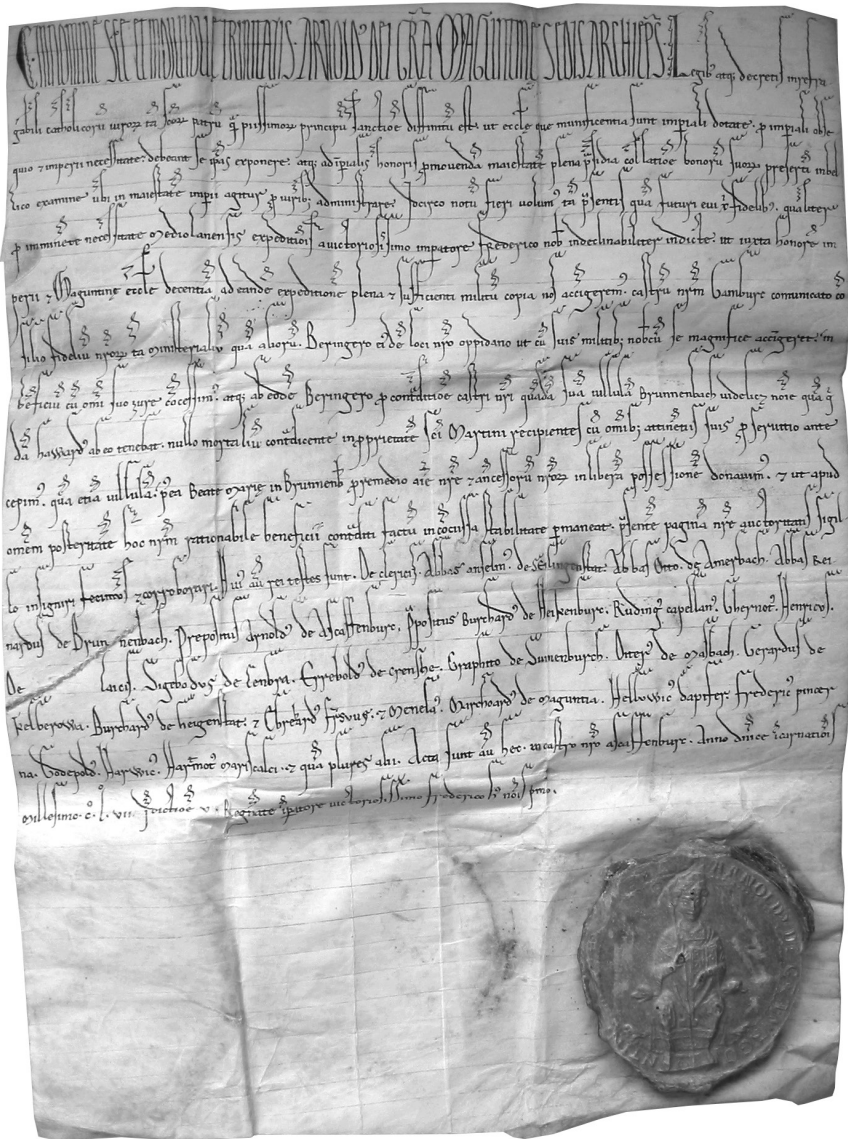 C. IN NOMINE SCE ET INDIVIDUE TRINITATIS. ARNOLD' DEI GRA MAGUNTINE SEDIS ARCHIEPS. Legib' atq; decretis
gabili catholicoru uiror ta scor patru q piissimor principu sanctioe diffinitu est. ut eccle que munificentia sunt impiali dotate. p impiali obse
quio & imperii necessitate. debeant se ipas exponere. atq; ad ipialis honoris pmouenda maiestate plena psidia collatioe bonoru suor presti in bel
lico examine ubi in maiestate imperii agitur p uirib; administrare. Idcirco notu fieri uolum' ta psentis qua futuri eui x fidelib'. qualiter
p imminete necessitate Mediolanensis expeditiois a uictoriosissimo impatore Frederico nob indeclinabiliter indicte. ut iuxta honore im
perii & Maguntine eccle decentia ad eande expeditione plena & sufficienti militu copia nos accigerem'. castru nrm Gamburc comunicato co
silio fideliu nror ta ministerialiu qua alioru. Beringero ei'de loci nro oppidano ut cu suis militib; nobcu se magnifice accigeret. in
beficiu cu omi suo iure cocessim'. atq; ab eode Beringero p conditioe castri nri quada sua uillula Brunnenbach uidelicz noie qua q
da haward' ab eo tenebat. nullo mortaliu contdicente in pprietate sci Martini recipientes cu omib; attinetiis suis p seruitio ante
cepim'. qua etia uillula. pea Beate Marie in Brunnenb premedio aie nre & ancessoru nror in libera possessione donauim'. & ut apud
omem posteritate hoc nrm rationabile beneficii conditi factu in cocussa stabilitate pmaneat. psente pagina nre auctoritatis sigil
lo insigniri fecimus & corroborari. Hui' au rei testes sunt. De clericis. Abbas anselm'. de Selingenstat. Abbas Otto. de Amerbach. Abbas Rei
nardus de Brun nenbach. Prepositus Arnold' de Ascaffenburc. Ppositus Burchard' de Heikenburc. Ruding' capellan'. Gbernot'. Henricus.
De laicis. Sigebodus de Cenbra. Errebold' de crenshe. Graphto de Sumenburch. Otteger' de Masbach. Gerardus de
Kelberowa. Burchard' de heigenstat. & Ebrehard' frs uus. & Menelau'. Mirchoard' de maguntia. Hellowic' dapifer. frederic' pincer
na. Godepold'. Harwic'. Hartmot' Mariscalci. & qua plures alii. Acta sunt au hec. in castro nro Ascaffenburc. Anno dnice icarnationis
Millesimo. c. l. vii. Idictioe v. Regnate ipatore uictoriosissimo frederico h' nois pmo.
ARNOLD' D